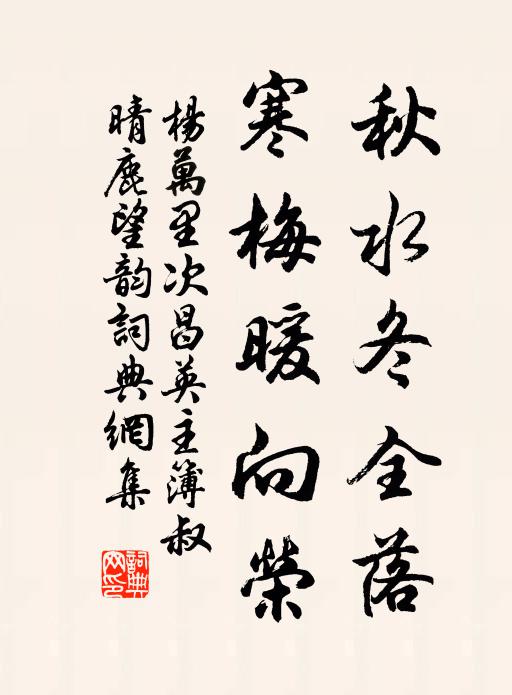 秋水冬全落
寒梅暖向榮
楊萬里次昌英主簿叔
晴鹿望韵詞典網集
詞典网印